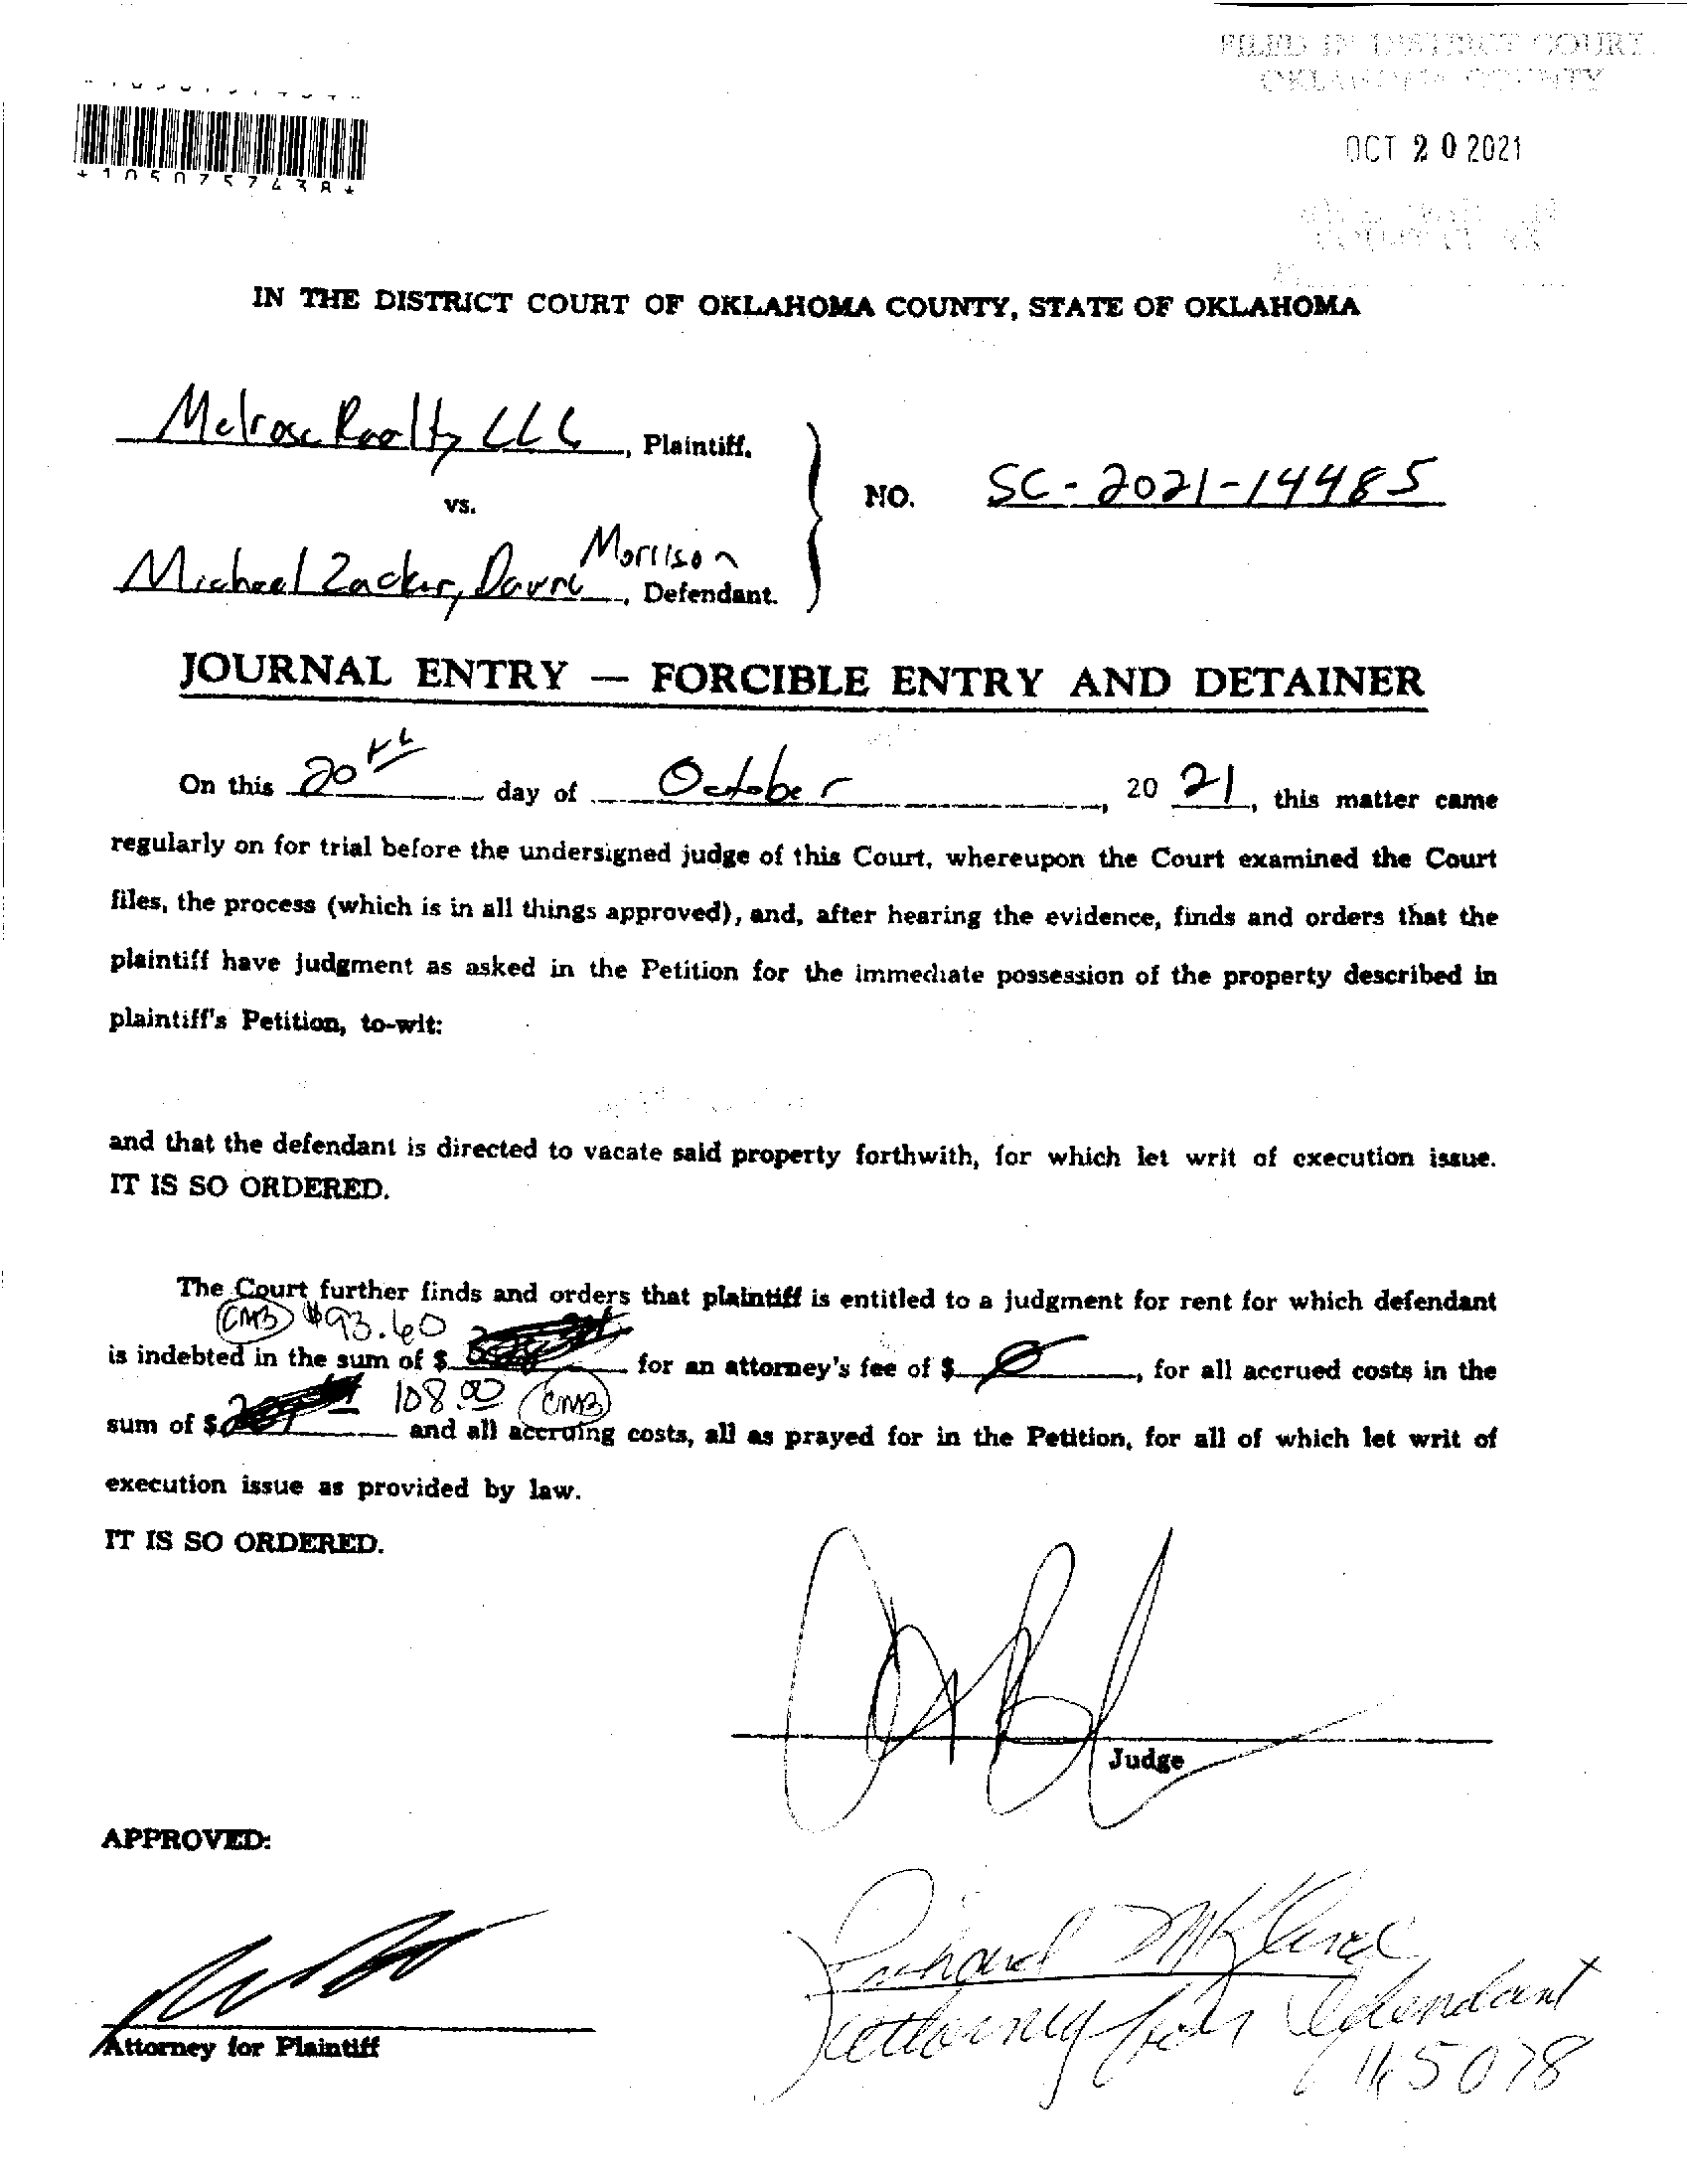 FILED IN DISTRICT COURT
OKLAHOMA COUNTY
OCT 20 2021
*1050757438*
IN THE DISTRICT COURT OF OKLAHOMA COUNTY, STATE OF OKLAHOMA
Melrose Realty LLC, Plaintiff,
vs.
NO. SC-2021-14485
Morrison
Michael Zacker, Defendant.
JOURNAL ENTRY — FORCIBLE ENTRY AND DETAINER
On this 20th day of October, 20 21, this matter came
regularly on for trial before the undersigned judge of this Court, whereupon the Court examined the Court
files, the process (which is in all things approved), and, after hearing the evidence, finds and orders that the
plaintiff have judgment as asked in the Petition for the immediate possession of the property described in
plaintiff's Petition, to-wit:
and that the defendant is directed to vacate said property forthwith, for which let writ of execution issue.
IT IS SO ORDERED.
The Court further finds and orders that plaintiff is entitled to a judgment for rent for which defendant
CMB $93.60
is indebted in the sum of $ for an attorney's fee of $ Ø, for all accrued costs in the
108.00 CMB
sum of $ and all accruing costs, all as prayed for in the Petition, for all of which let writ of
execution issue as provided by law.
IT IS SO ORDERED.
Judge
APPROVED:
Attorney for Plaintiff
Attorney for Defendant